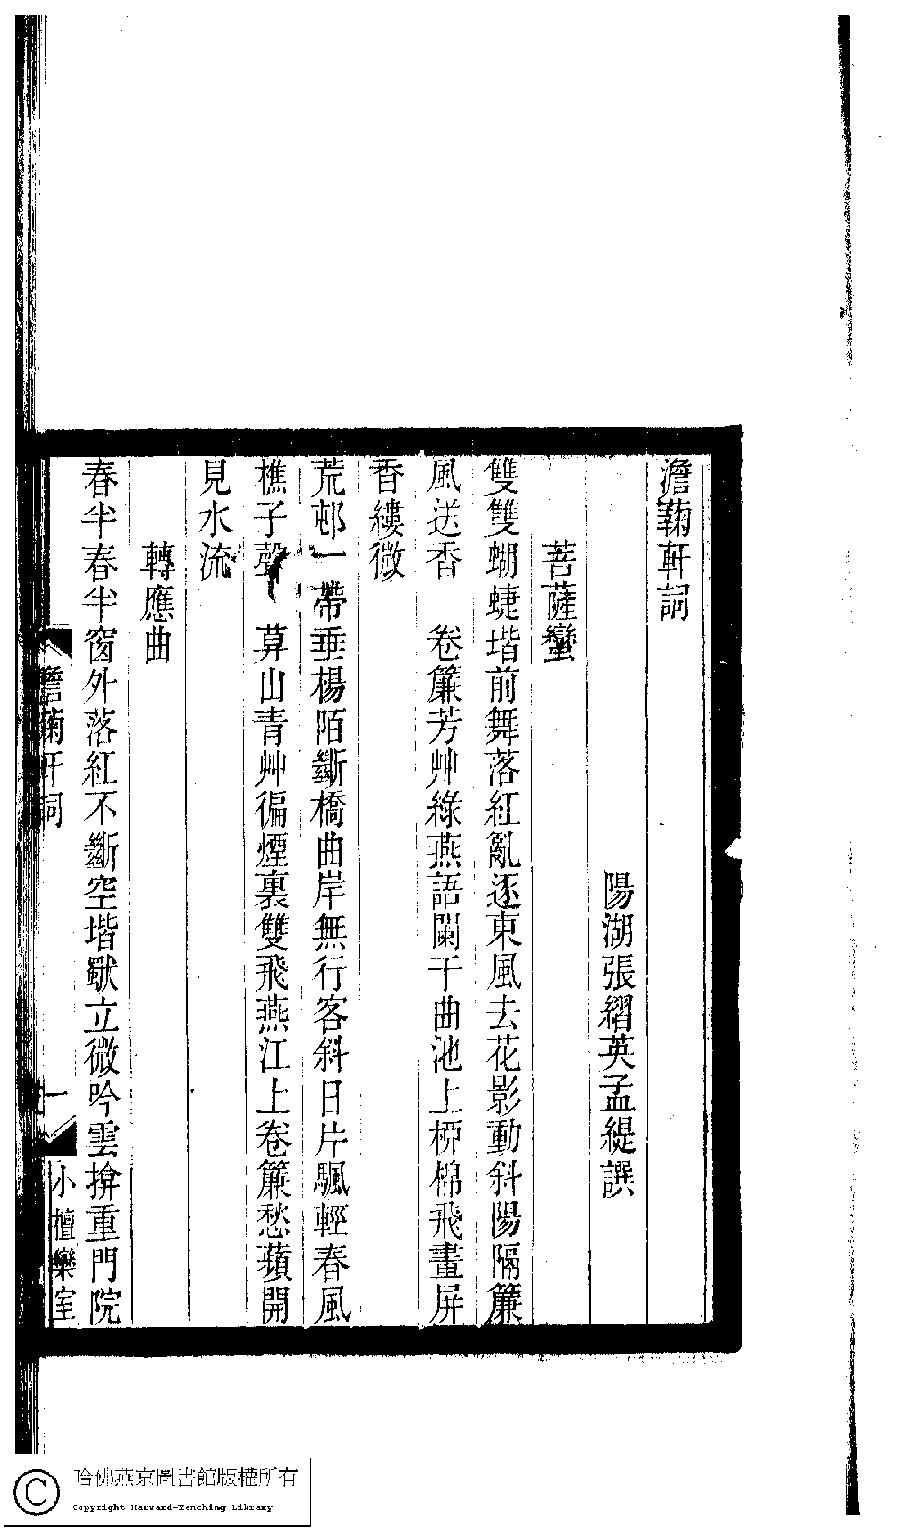 澹蘜軒詞
陽湖張䌖英孟緹譔
菩薩蠻
雙雙蝴蜨堦前舞落紅亂逐東風去花影動斜陽隔簾
風送香　卷簾芳艸綠燕語闌干曲池上桺棉飛畫屏
香縷微
荒邨一帶垂楊陌斷橋曲岸無行客斜日片颿輕春風
樵子聲　算山青艸徧煙裏雙飛燕江上卷簾愁蘋開
見水流
轉應曲
春半春半窗外落紅不斷空堦獃立微吟雲揜重門院
澹蘜軒詞
一
小檀欒室
哈佛燕京圖書館版權所有
Copyright Harvard-Yenching Library